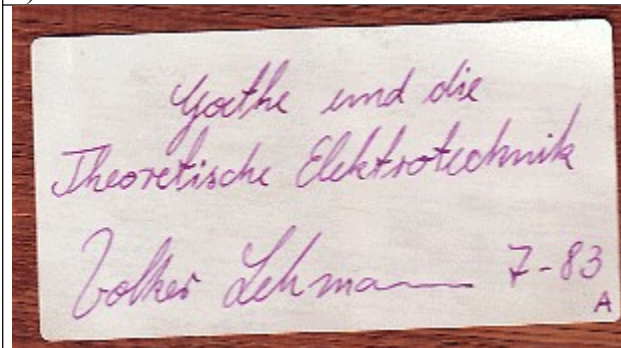 Goethe und die
Theoretische Elektrotechnik
Volker Lehmann 7-83
A